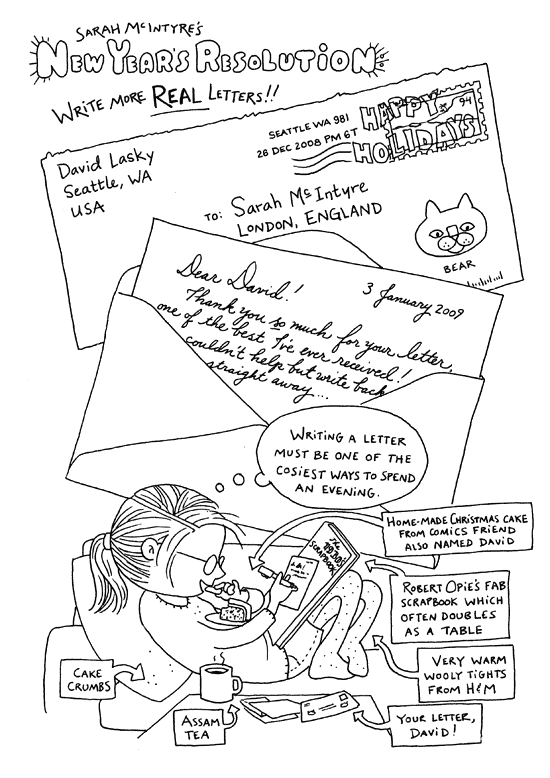 SARAH McINTYRE'S
NEW YEAR'S RESOLUTION
WRITE MORE REAL LETTERS!!
David Lasky
Seattle, WA
USA
SEATTLE WA 981
28 DEC 2008 PM 6T
HAPPY
HOLIDAYS
94
TO: Sarah McIntyre
LONDON, ENGLAND
BEAR
Dear David!
3 January 2009
Thank you so much for your letter,
one of the best I've ever received! I
couldn't help but write back
straight away...
WRITING A LETTER
MUST BE ONE OF THE
COSIEST WAYS TO SPEND
AN EVENING.
HOME-MADE CHRISTMAS CAKE
FROM COMICS FRIEND
ALSO NAMED DAVID
The
SCRAPBOOK
ROBERT OPIE'S FAB
SCRAPBOOK WHICH
OFTEN DOUBLES
AS A TABLE
VERY WARM
WOOLY TIGHTS
FROM H&M
CAKE
CRUMBS
ASSAM
TEA
YOUR LETTER,
DAVID!